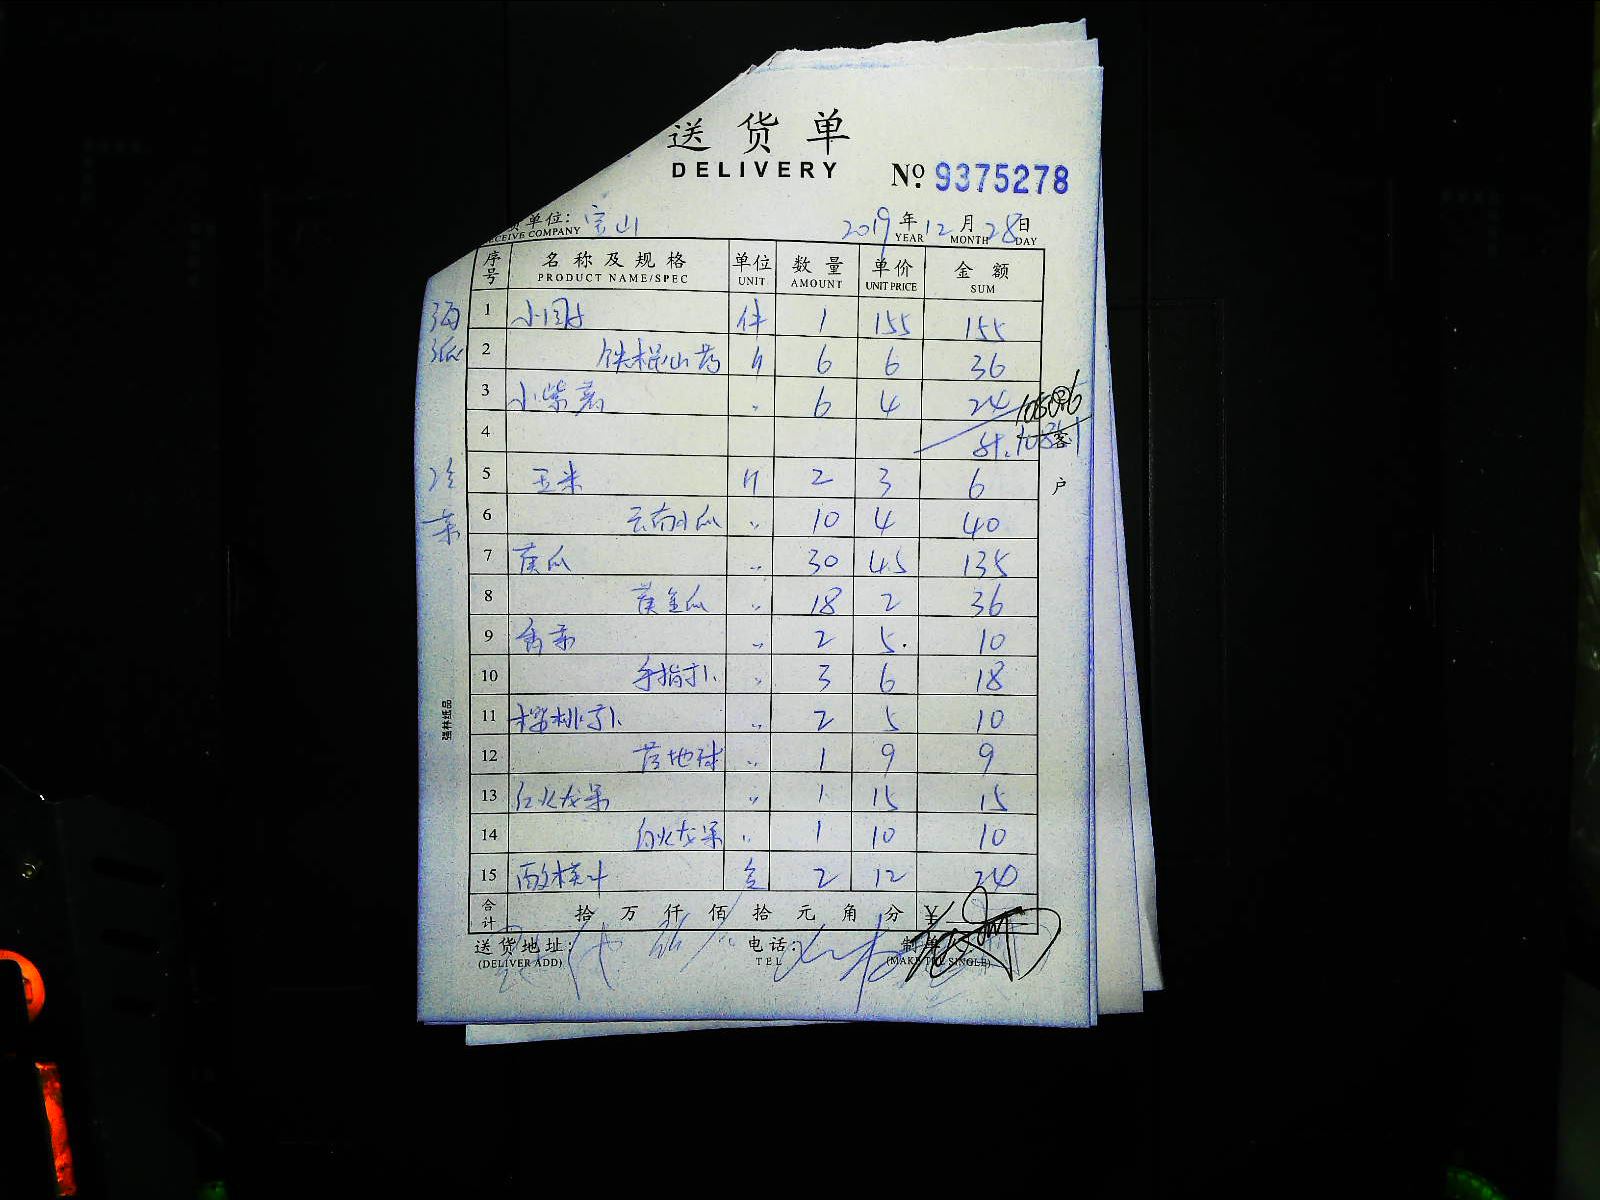 送货单
DELIVERY
No. 9375278
货单位: 宝山 2019年12月28日
RECEIVE COMPANY YEAR MONTH DAY
序号 名称及规格 单位 数量 单价 金额
PRODUCT NAME/SPEC UNIT AMOUNT UNIT PRICE SUM
1 件 1 155 155
2 铁棍山药 〃 6 6 36
3 小紫薯 〃 6 4 24
4
客
户
5 玉米 〃 2 3 6
6 云南小瓜 〃 10 4 40
7 黄瓜 〃 30 4.5 135
8 黄金瓜 〃 18 2 36
9 〃 2 5 10
10 手指卜 〃 3 6 18
11 樱桃卜 〃 2 5 10
12 〃 1 9 9
13 红火龙果 〃 1 15 15
14 白火龙果 〃 1 10 10
15 盒 2 12 24
合计 拾 万 仟 佰 拾 元 角 分 ¥
送货地址: 电话: 制单
(DELIVER ADD) TEL (MAKE THE SINGLE)
强林纸品